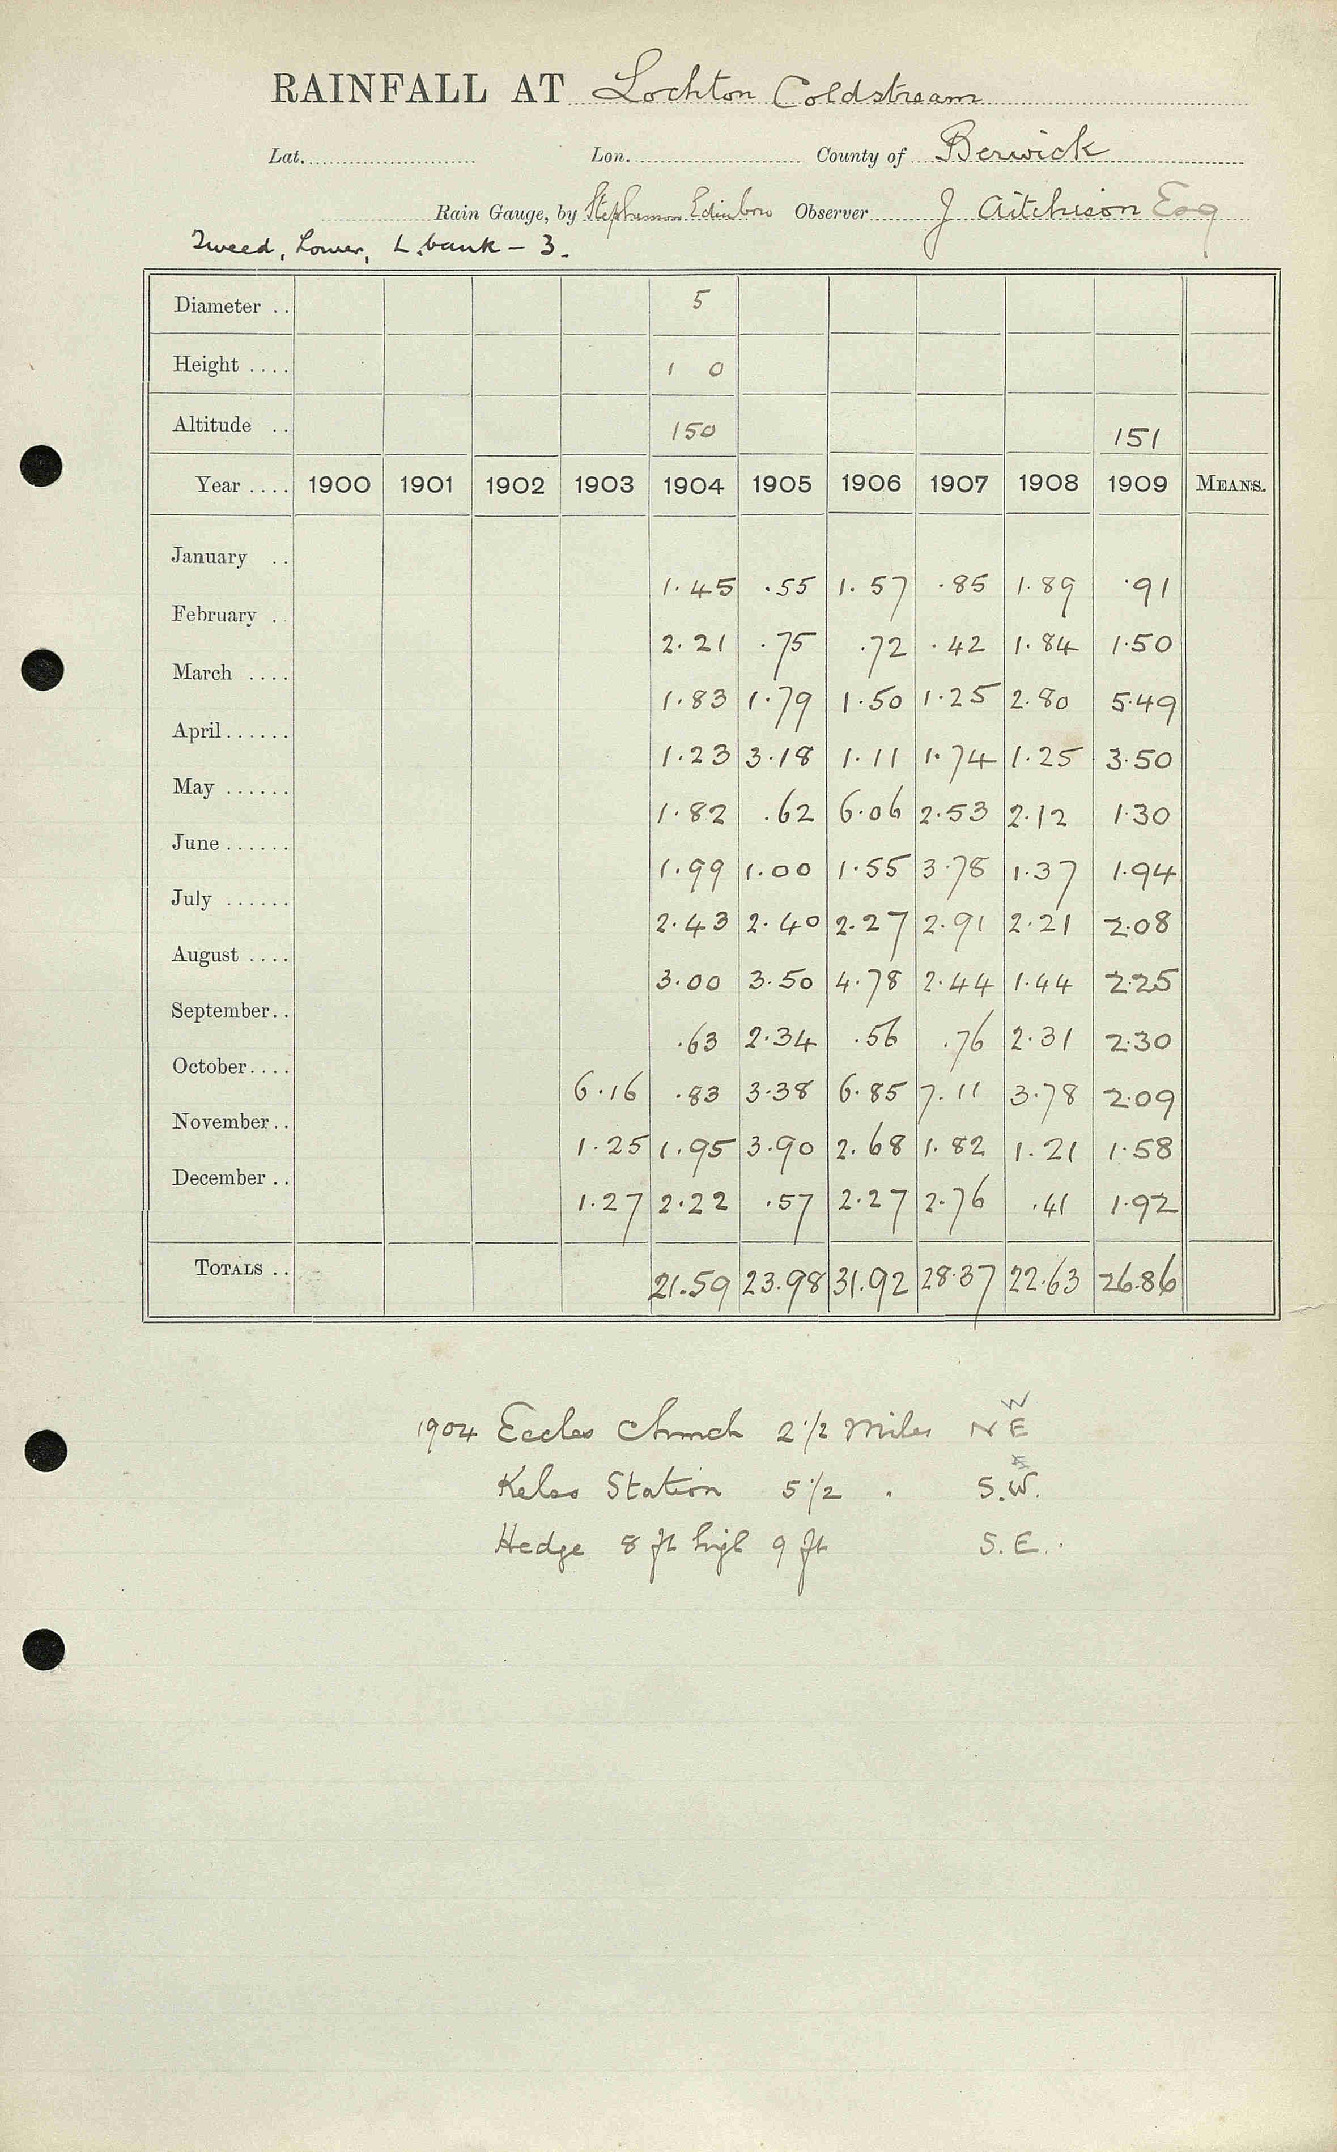 RAINFALL AT Lochton Coldstream
Lat. Lon. County of Berwick
Rain Gauge, by Stephenson Edinboro Observer J Aitchison Esq
Tweed, Lower, L. bank - 3.
Diameter .. 5
Height .... 1 0
Altitude .. 150 151
Year .... 1900 1901 1902 1903 1904 1905 1906 1907 1908 1909 MEANS.
January .. 1.45 .55 1.57 .85 1.89 .91
February .. 2.21 .75 .72 .42 1.84 1.50
March .... 1.83 1.79 1.50 1.25 2.80 5.49
April...... 1.23 3.18 1.11 1.74 1.25 3.50
May ...... 1.82 .62 6.06 2.53 2.12 1.30
June...... 1.99 1.00 1.55 3.78 1.37 1.94
July ...... 2.43 2.40 2.27 2.91 2.21 2.08
August .... 3.00 3.50 4.78 2.44 1.44 2.25
September.. .63 2.34 .56 .76 2.31 2.30
October.... 6.16 .83 3.38 6.85 7.11 3.78 2.09
November.. 1.25 1.95 3.90 2.68 1.82 1.21 1.58
December .. 1.27 2.22 .57 2.27 2.76 .41 1.92
TOTALS .. 21.59 23.98 31.92 28.37 22.63 26.86
W
1904 Eccles Church 2 1/2 Miles N E
E
Kelso Station 5 1/2 . S.W.
Hedge 8 ft high 9 ft S.E.